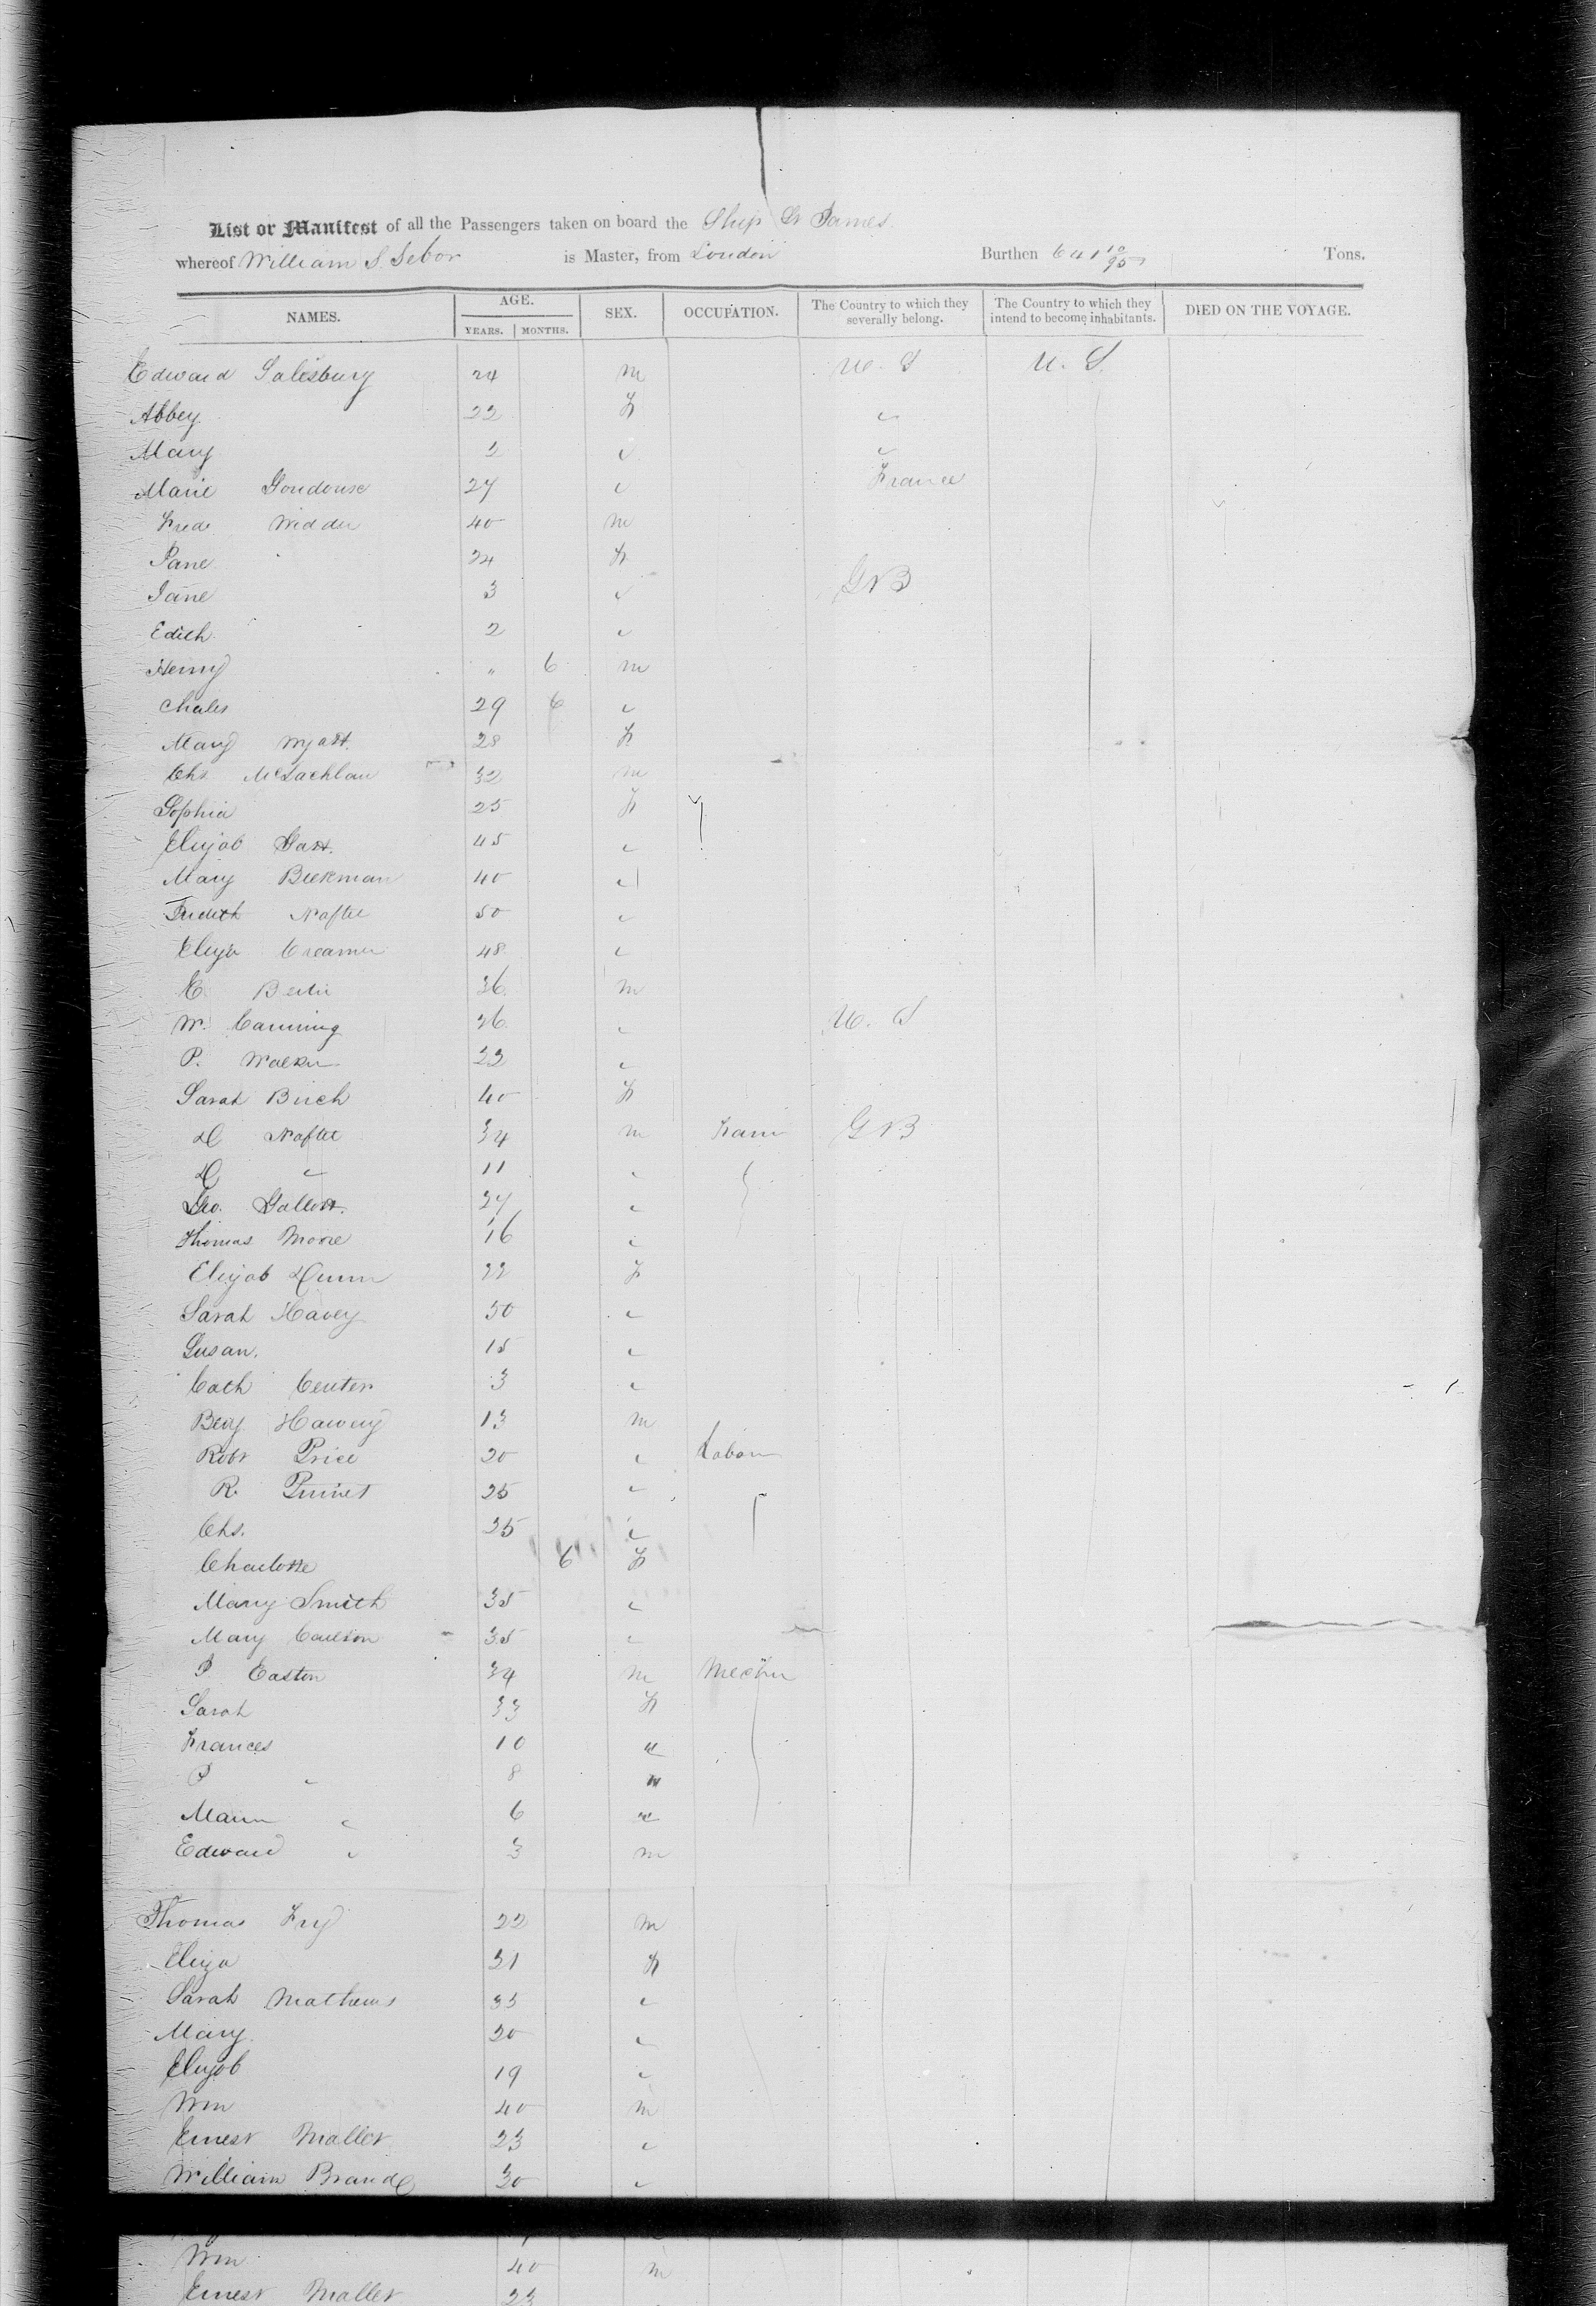 List or Manifest of all the Passengers taken on board the Ship St James
whereof William S. Sebor is Master, from London Burthen 641 10/95 Tons.
NAMES. AGE. SEX. OCCUPATION. The Country to which they severally belong. The Country to which they intend to become inhabitants. DIED ON THE VOYAGE.
YEARS. MONTHS.
Edward Salisbury 24 m U. S U. S.
Abbey 22 F "
Mary 2 " "
Marie 27 " France
Fred Widder 40 m
Jane 24 F
Jane 3 " G B
Edith 2 "
Henry " 6 m
Chales 29 6 "
Mary Wyatt. 28 F
Chs McLachlan 32 m
Sophia 25 F
Elizab 45 "
Mary Beekman 40 "
Judith Naftel 50 "
Eliza Creamer 48 "
C. 36 m
W. Canning 26 " U. S
P. Walker 22 "
Sarah Birch 40 F
D Naftel 34 m Farm G B
D " 11 "
Geo. Gallott. 27 "
Thomas Moore 16 "
Elizab Dunn 22 F
Sarah Havey 50 "
Susan. 15 "
Cath Center 3 "
Benj Harvey 13 m
Robt Price 20 " Labour
R. 25 "
Chs. 25 "
Charlotte 6 F
Mary Smith 35 "
Mary Coulson 35 "
J Easton 34 m Mechn
Sarah 33 F
Frances 10 "
J " 8 "
Maria " 6 "
Edward " 3 m
Thomas Fry 22 m
Eliza 21 F
Sarah Mathews 35 "
Mary 20 "
Elizab 19 "
Wm 40 m
Ernest Mallet 23 "
William Brand 30 "
Wm 40 m
Ernest Mallet 23